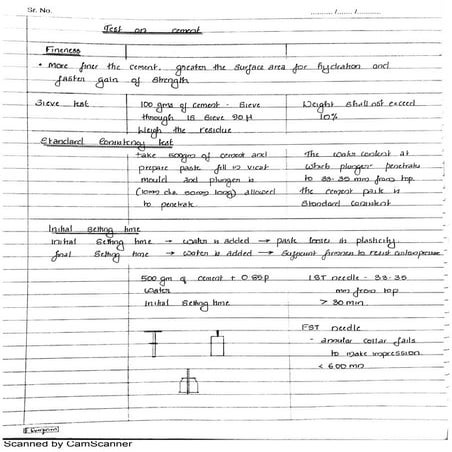 Sr. No.
....../....../......
Test on cement
Fineness
• More finer the cement, greater the surface area for hydration and
faster gain of strength
Sieve test
100 gms of cement - Sieve
through IS Sieve 90 μ
Weigh the residue
Weight shall not exceed
10%
Standard Consistency test
take 500gm of cement and
prepare paste fill to vicat
mould and plunger is
(10mm dia, 50mm long) allowed
to penetrate.
The water content at
which plunger penetrate
to 33-35 mm from top.
the cement paste is
Standard consistent
Initial Setting time
Initial Setting time → water is added → paste losses its plasticity
final Setting time → water is added → Sufficient firmness to resist
500 gm of cement + 0.85P
water
Initial Setting time
IST needle - 33-35
mm from top
> 30 min.
FST needle
- annular collar fails
to make impression
< 600 mn
Scanned by CamScanner